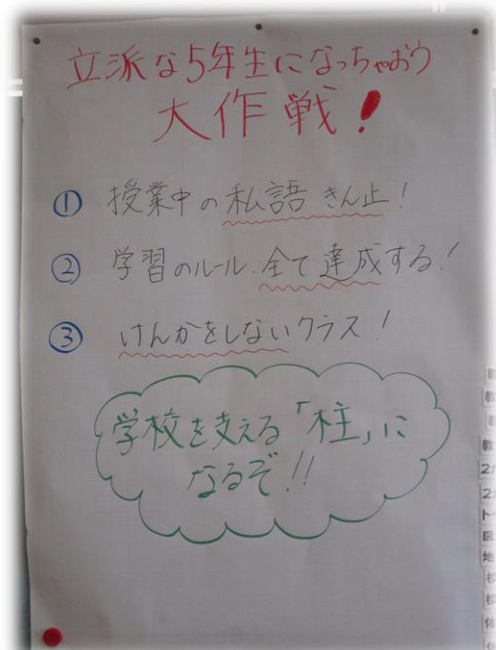 立派な5年生になっちゃおう
大作戦！
① 授業中の私語きん止！
② 学習のルール.全て達成する！
③ けんかをしないクラス！
学校を支える「柱」に
なるぞ!!